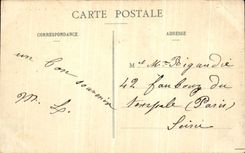 CARTE POSTALE
CORRESPONDANCE
ADRESSE
un bon souvenir
M. L.
M. et Mme Bigandré
42 faubourg du
Temple (Paris)
Seine